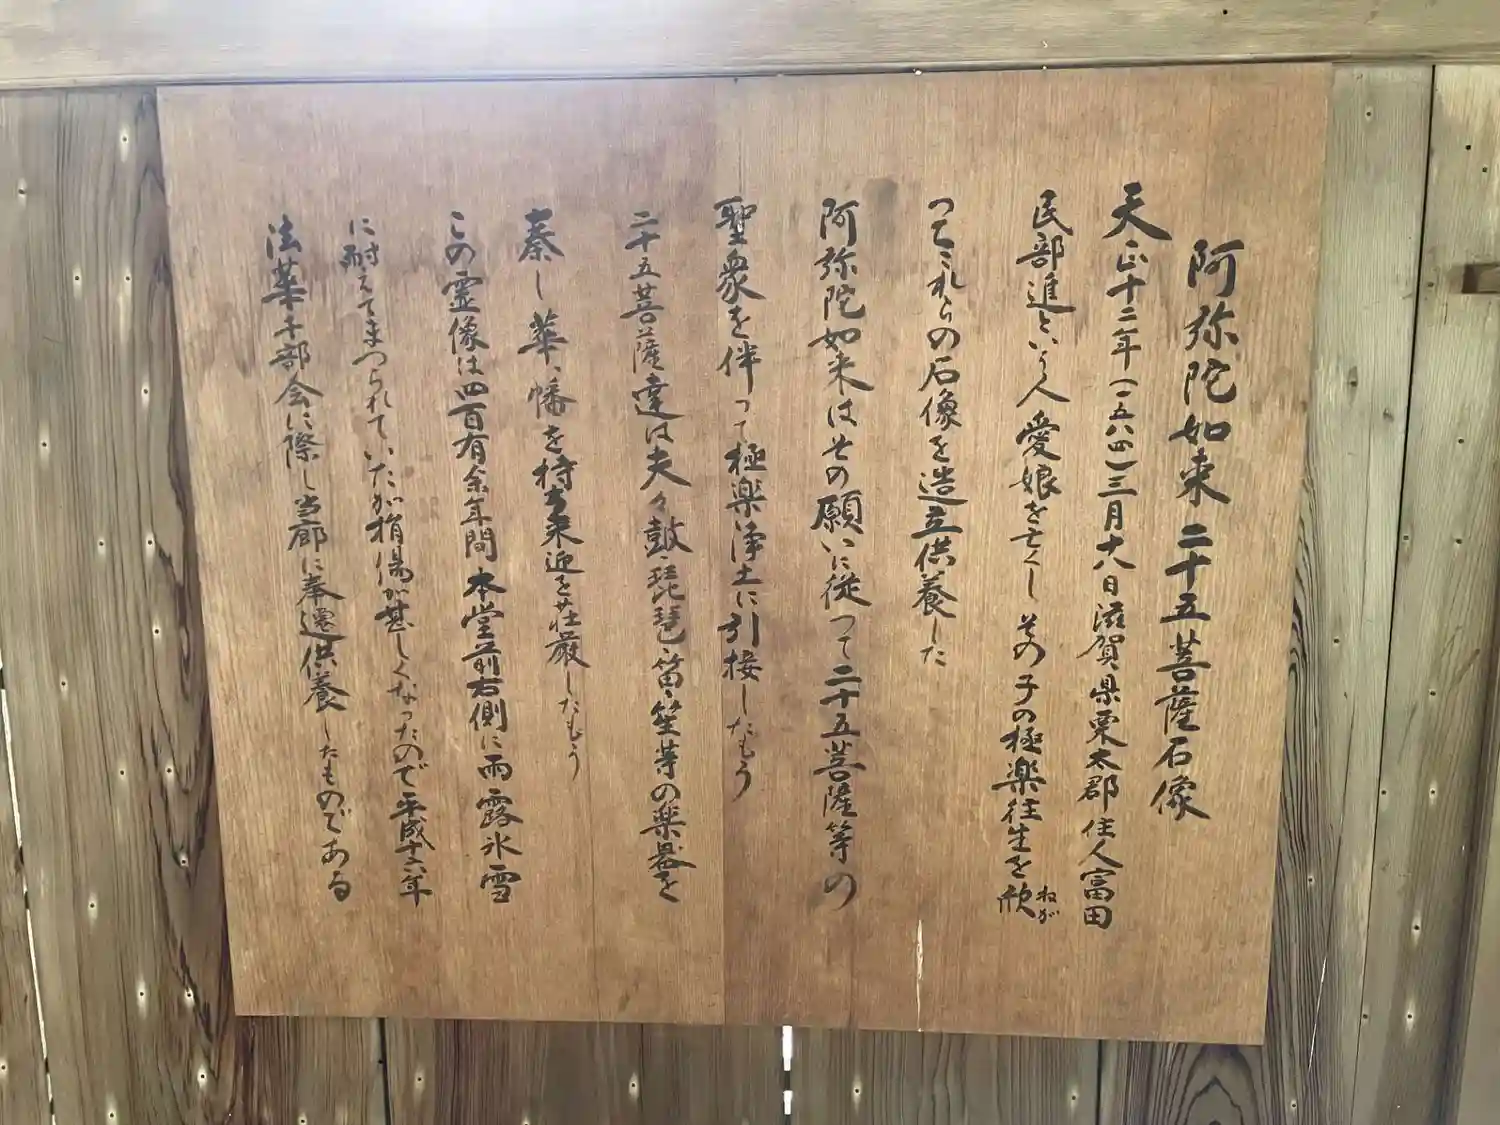 阿弥陀如来二十五菩薩石像
天正十二年(一五八四)三月十八日滋賀県栗太郡住人富田
民部進という人愛娘を亡くしその子の極楽往生を欣
ねが
つてこれらの石像を造立供養した
阿弥陀如来はその願いに従つて二十五菩薩等の
聖衆を伴つて極楽浄土に引接したもう
二十五菩薩達は夫々鼓、琵琶、笛、笙等の楽器を
奏し華、幡を持ち来迎を荘厳したもう
この霊像は四百有余年間本堂前右側に雨露氷雪
に耐えてまつられていたが損傷が甚しくなったので平成十六年
法華千部会に際し当廊に奉遷供養したものである